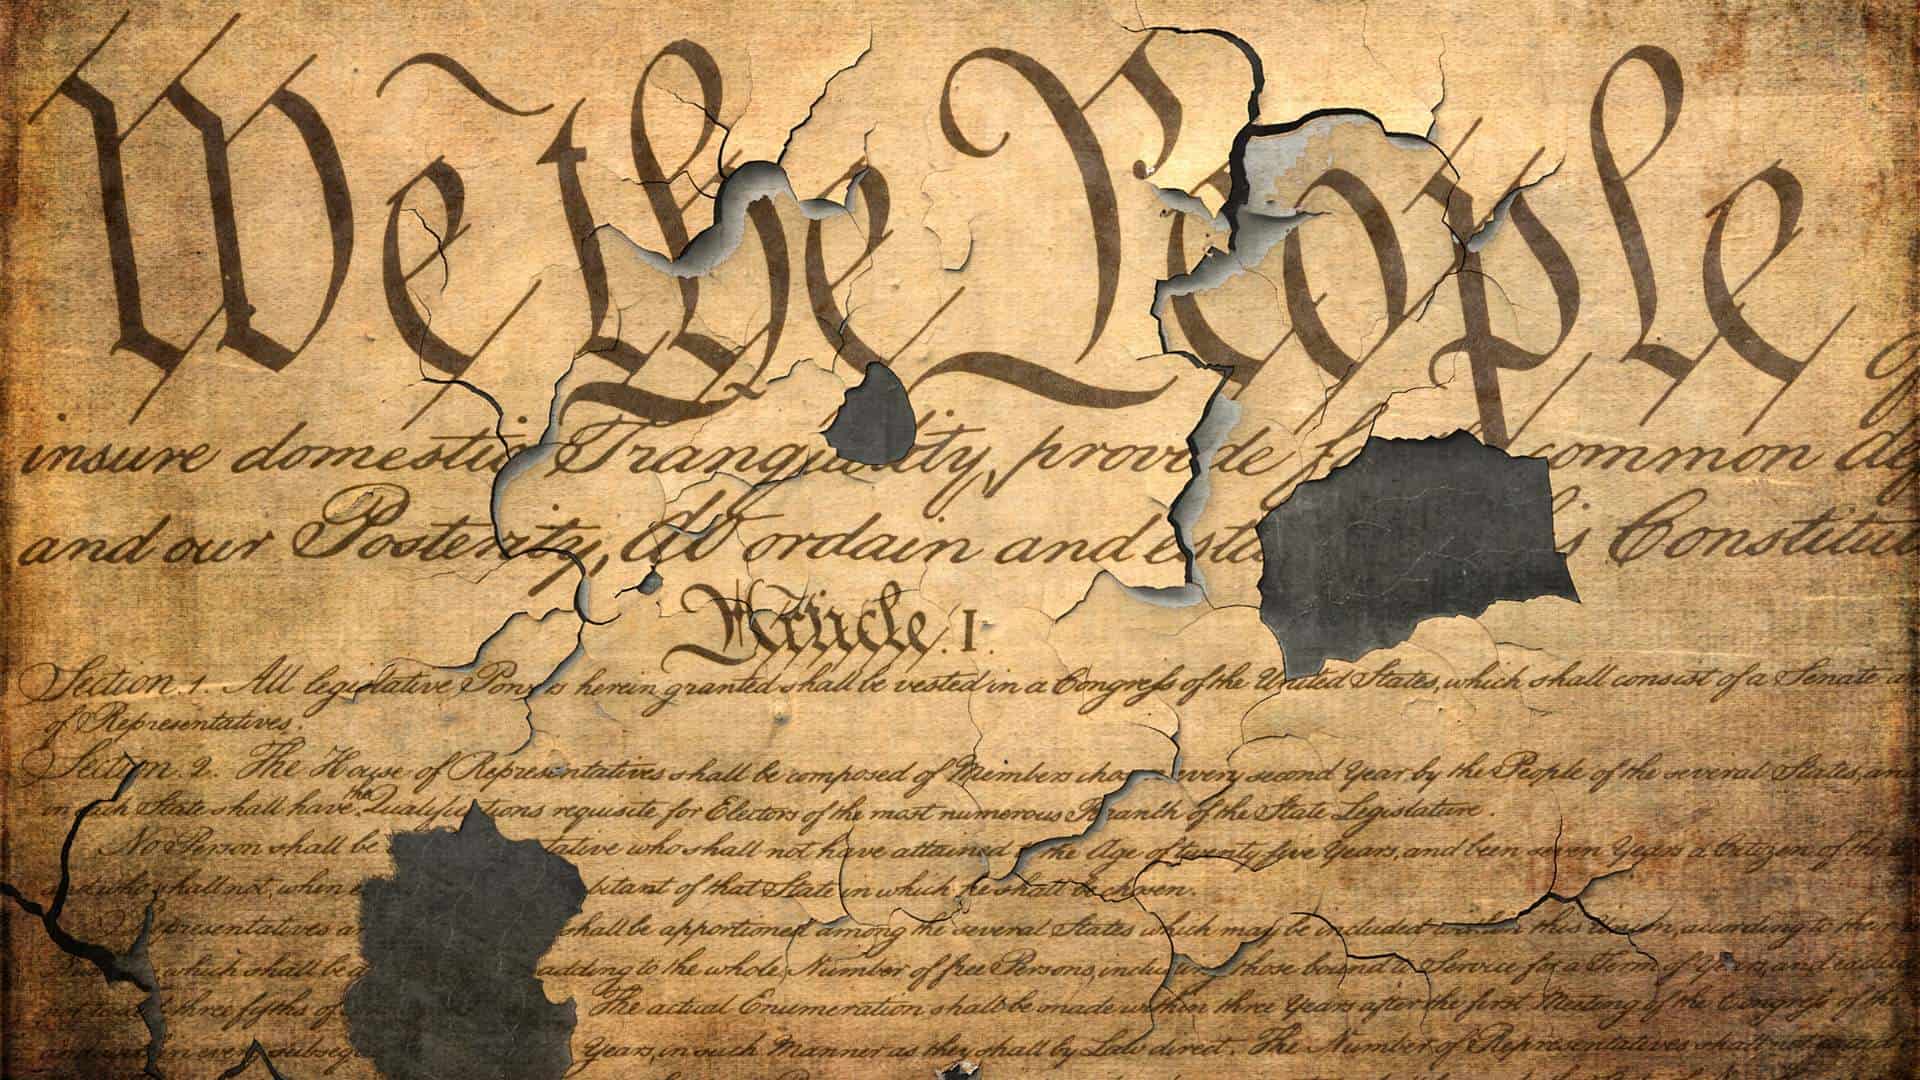 We the People
insure domestic Tranquility, provide common
and our Posterity, do ordain and Constitut
Article. I.
Section. 1. All legislative Powers herein granted shall be vested in a Congress of the United States, which shall consist of a Senate
of Representatives.
Section. 2. The House of Representatives shall be composed of Members chosen every second Year by the People of the several States, and
in each State shall have the Qualifications requisite for Electors of the most numerous Branch of the State Legislature.
No Person shall be tative who shall not have attained the Age of twenty five Years, and been seven Years a Citizen of the
and who shall not, when bitant of that State in which he shall be chosen.
Representatives an shall be apportioned among the several States which may be included within this Union, according to the
which shall be adding to the whole Number of free Persons, including those bound to Service for a Term of Years, and
three fifths of The actual Enumeration shall be made within three Years after the first Meeting of the Congress of the
Years, in such Manner as they shall by Law direct. The Number of Representatives shall not